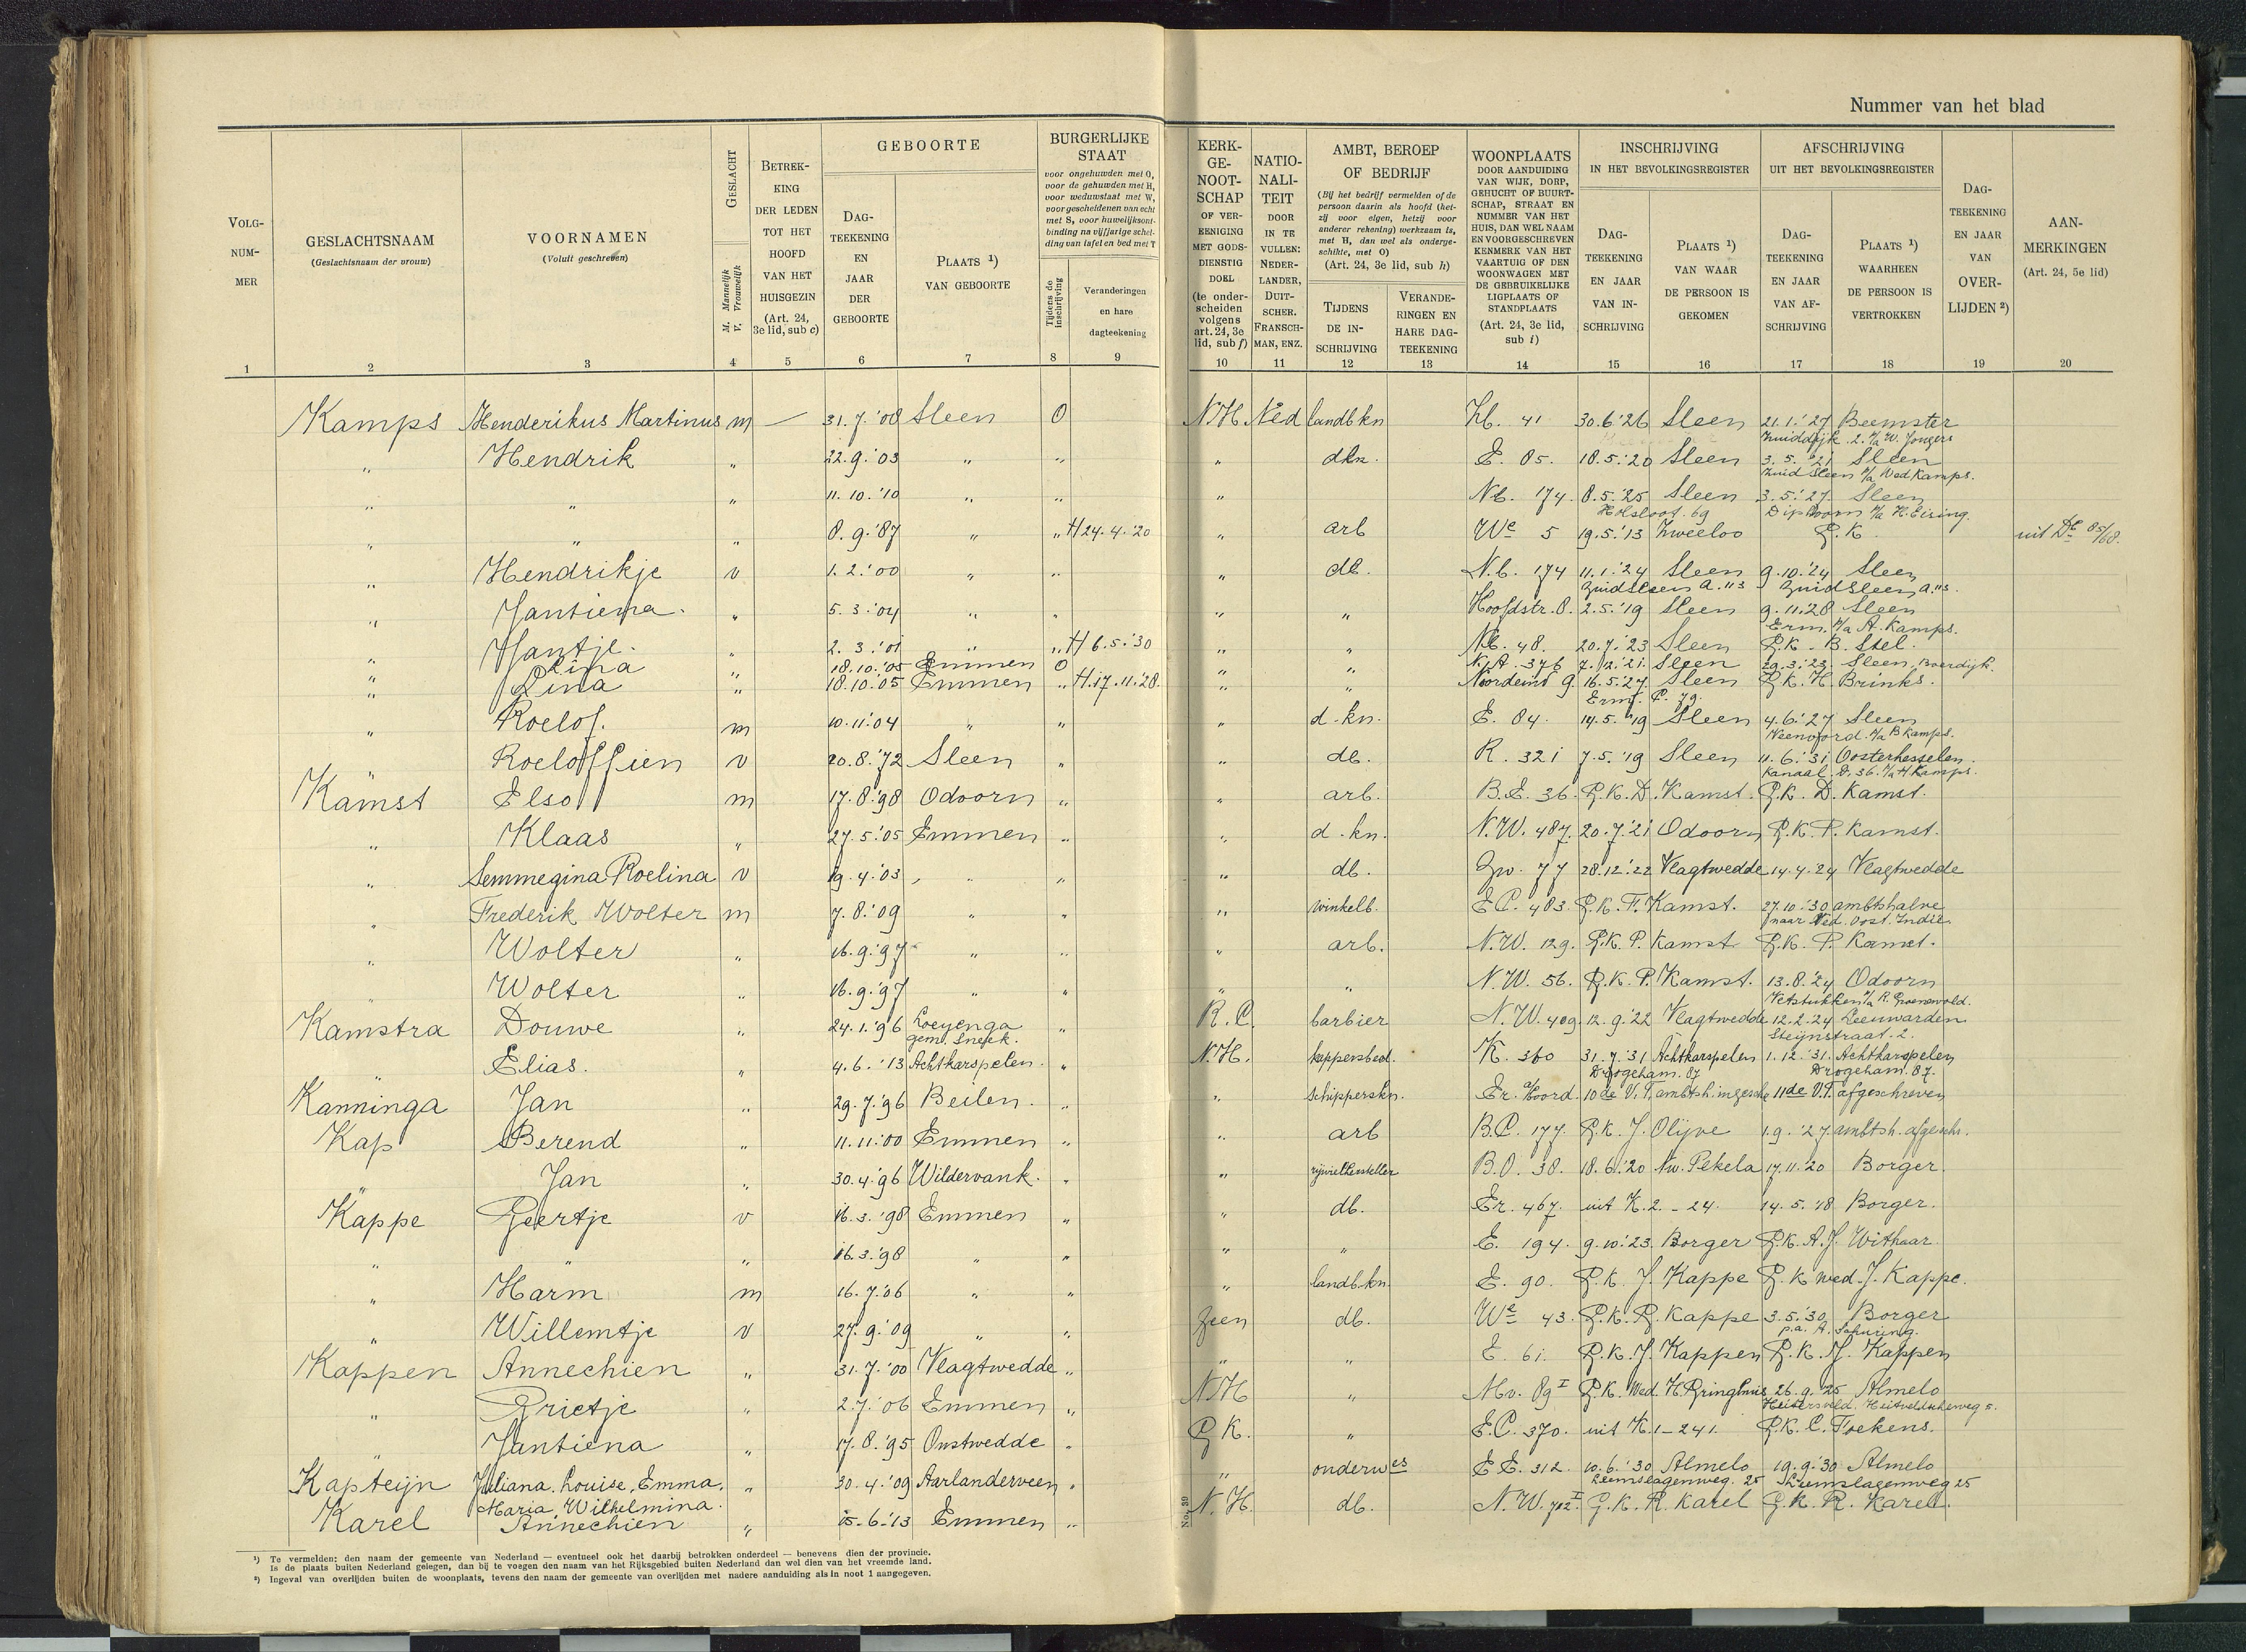 Nummer van het blad
VOLG-NUM-MER
GESLACHTSNAAM
(Geslachtsnaam der vrouw)
VOORNAMEN
(Voluit geschreven)
GESLACHT
M. Mannelijk
V. Vrouwelijk
BETREK-KING DER LEDEN TOT HET HOOFD VAN HET HUISGEZIN
(Art. 24, 3e lid, sub c)
GEBOORTE
DAG-TEEKENING EN JAAR DER GEBOORTE
PLAATS ¹) VAN GEBOORTE
BURGERLIJKE STAAT
voor ongehuwden met O, voor de gehuwden met H, voor weduwstaat met W, voor gescheidenen van echt met S, voor huwelijksont-binding na vijfjarige schei-ding van tafel en bed met T
Tijdens de inschrijving
Veranderingen en hare dagteekening
KERK-GE-NOOT-SCHAP
OF VER-EENIGING MET GODS-DIENSTIG DOEL
(te onder-scheiden volgens art. 24, 3e lid, sub f)
NATIO-NALI-TEIT
DOOR IN TE VULLEN: NEDER-LANDER, DUIT-SCHER, FRANSCH-MAN, ENZ.
AMBT, BEROEP OF BEDRIJF
(Bij het bedrijf vermelden of de persoon daarin als hoofd (het-zij voor eigen, hetzij voor anderer rekening) werkzaam is, met H, dan wel als onderge-schikte, met O)
(Art. 24, 3e lid, sub h)
TIJDENS DE IN-SCHRIJVING
VERANDE-RINGEN EN HARE DAG-TEEKENING
WOONPLAATS
DOOR AANDUIDING VAN WIJK, DORP, GEHUCHT OF BUURT-SCHAP, STRAAT EN NUMMER VAN HET HUIS, DAN WEL NAAM EN VOORGESCHREVEN KENMERK VAN HET VAARTUIG OF DEN WOONWAGEN MET DE GEBRUIKELIJKE LIGPLAATS OF STANDPLAATS
(Art. 24, 3e lid, sub i)
INSCHRIJVING
IN HET BEVOLKINGSREGISTER
DAG-TEEKENING EN JAAR VAN IN-SCHRIJVING
PLAATS ¹) VAN WAAR DE PERSOON IS GEKOMEN
AFSCHRIJVING
UIT HET BEVOLKINGSREGISTER
DAG-TEEKENING EN JAAR VAN AF-SCHRIJVING
PLAATS ¹) WAARHEEN DE PERSOON IS VERTROKKEN
DAG-TEEKENING EN JAAR VAN OVER-LIJDEN ²)
AAN-MERKINGEN
(Art. 24, 5e lid)
1 2 3 4 5 6 7 8 9 10 11 12 13 14 15 16 17 18 19 20
Kamps Henderikus Martinus m — 31.7.'08 Sleen O N.H. Ned landb.kn 41 30.6.'26 Sleen 21.1.'27 Beemster
Zuiddijk 2. p/a W. Jongers
" Hendrik " 22.9.'03 " " " dkn. E. 85. 18.5.'20 Sleen 3.5.'21 Sleen
Zuid Sleen p/a Wed Kamps.
" " " 11.10.'10 " " " N.b. 174. 8.5.'25 Sleen 3.5.'27 Sleen
Holsloot. 69 Diphoorn p/a H. Eiring.
" " " 8.9.'87 " " H 24.4.'20 " arb We 5 19.5.'13 Zweeloo G.K. uit De 85/68.
" Hendrikje v 1.2.'00 " " " db. N.b. 174 11.1.'24 Sleen 9.10.'24 Sleen
Zuidsleen A.113 Zuidsleen A.113.
" Jantiena. " 5.3.'04 " " " " Hoofdstr. 8. 2.5.'19 Sleen 9.11.'28 Sleen
Erm. p/a A. Kamps.
" Jantje. " 2.3.'01 " " H 6.5.'30 " " N.b. 48. 20.7.'23 Sleen G.K. B. Stel.
" Lina " 18.10.'05 Emmen O " " N.A. 376 7.12.'21. Sleen 29.3.'23 Sleen, Boerdijk.
" Lina " 18.10.'05 Emmen " H.17.11.'28. " " Noordeind 9. 16.5.'27 Sleen G.K. H. Brinks.
Erm. C. 79.
" Roelof. m 10.11.'04 " " " d-kn. E. 84. 14.5.'19 Sleen 4.6.'27 Sleen
Veenoord. p/a B Kamps.
" Roeloffien v 20.8.'72 Sleen " " db. R. 321 7.5.'19 Sleen 11.6.'31 Oosterhesselen.
Kanaal. D. 36. p/a H Kamps.
Kamst Elso m 17.8.'98 Odoorn " " arb. B.E. 36. G.K. D. Kamst. G.K. D. Kamst.
" Klaas " 27.5.'05 Emmen " " d-kn. N.W. 487. 20.7.'21 Odoorn G.K. P. Kamst.
" Semmegina Roelina v 19.4.'03 " " " db. Zw. 77 28.12.'22 Vlagtwedde 14.4.24 Vlagtwedde
" Frederik Wolter m 7.8.'09 " " " winkelb. E.C. 483. G.K. F. Kamst. 27.10.'30 ambtshalve
naar Ned. Oost. Indië
" Wolter " 16.9.'97 " " " arb. N.W. 129. G.K. P. Kamst G.K. P. Kamst.
" Wolter " 16.9.'97 " " " " N.W. 56. G.K. P. Kamst. 13.8.'24 Odoorn
p/a R. Groenewold.
Kamstra Douwe " 24.1.'96 Loeyenga gem. Sneek. " R.C. barbier N.W. 409. 12.9.'22 Vlagtwedde 12.2.'24 Leeuwarden
Steijnstraat. 2.
" Elias. " 4.6.'13 Achtkarspelen. " N.H. kappersbed. K. 360 31.7.'31 Achtkarspelen 1.12.'31. Achtkarspelen
Drogeham. 87 Drogeham. 87.
Kanninga Jan " 29.7.'96 Beilen. " " Schipperskn. Er. a/boord. 10de V.T. ambtsh. ingesch. 11de V.T. afgeschreven
Kap Berend " 11.11.'00 Emmen " " arb B.C. 177. G.K. J. Olijve 1.9.'27. ambtsh. afgeschr.
" Jan " 30.4.'96 Wildervank. " " rijwielhersteller B.O. 38. 18.6.'20 Nw. Pekela 17.11.'20 Borger.
Kappe Geertje v 16.3.'98 Emmen " " db. Er. 467. uit K.2.-24. 14.5.'18 Borger.
" " " 16.3.'98 " " " " E. 194. 9.10.'23. Borger G.K. A.J. Withaar.
" Harm m 16.7.'06 " " " landb.kn. E. 90. G.K. J. Kappe G.K. wed. J. Kappe.
" Willemtje v 27.9.'09 " " geen db. We 43. G.K. G. Kappe 3.5.'30 Borger
p.a. A.
Kappen Annechien " 31.7.'00 Vlagtwedde " " " E. 61. G.K. J. Kappen G.K. J. Kappen
" Grietje " 2.7.'06 Emmen " N.H " Mv. 89 I G.K. Wed. H. Gringhuis 26.9.'25 Almelo
" Jantiena " 17.8.'95 Onstwedde " G.K. " E.C. 370. uit K.1-241. G.K. C. Foekens.
Kapteijn Juliana, Louise, Emma, Maria, Wilhelmina. " 30.4.'09 Aarlanderveen " " onderwes E.E. 312. 10.6.'30 Almelo 19.9.'30 Almelo
Leemslagenweg. 25 Leemslagenweg 25
Karel Annechien " 15-6-'13 Emmen " N.H. db. N.W. 702 I. G.K. R. Karel G.K. R. Karel.
No. 39
¹) Te vermelden: den naam der gemeente van Nederland — eventueel ook het daarbij betrokken onderdeel — benevens dien der provincie.
Is de plaats buiten Nederland gelegen, dan bij te voegen den naam van het Rijksgebied buiten Nederland dan wel dien van het vreemde land.
²) Ingeval van overlijden buiten de woonplaats, tevens den naam der gemeente van overlijden met nadere aanduiding als in noot 1 aangegeven.